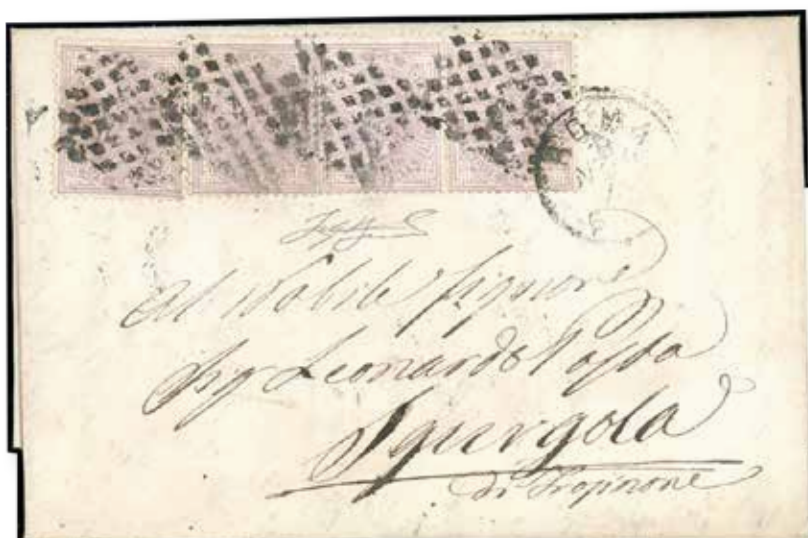 ROMA
Al Nobile Signore
Sig Leonardo
Sgurgola
di Frosinone